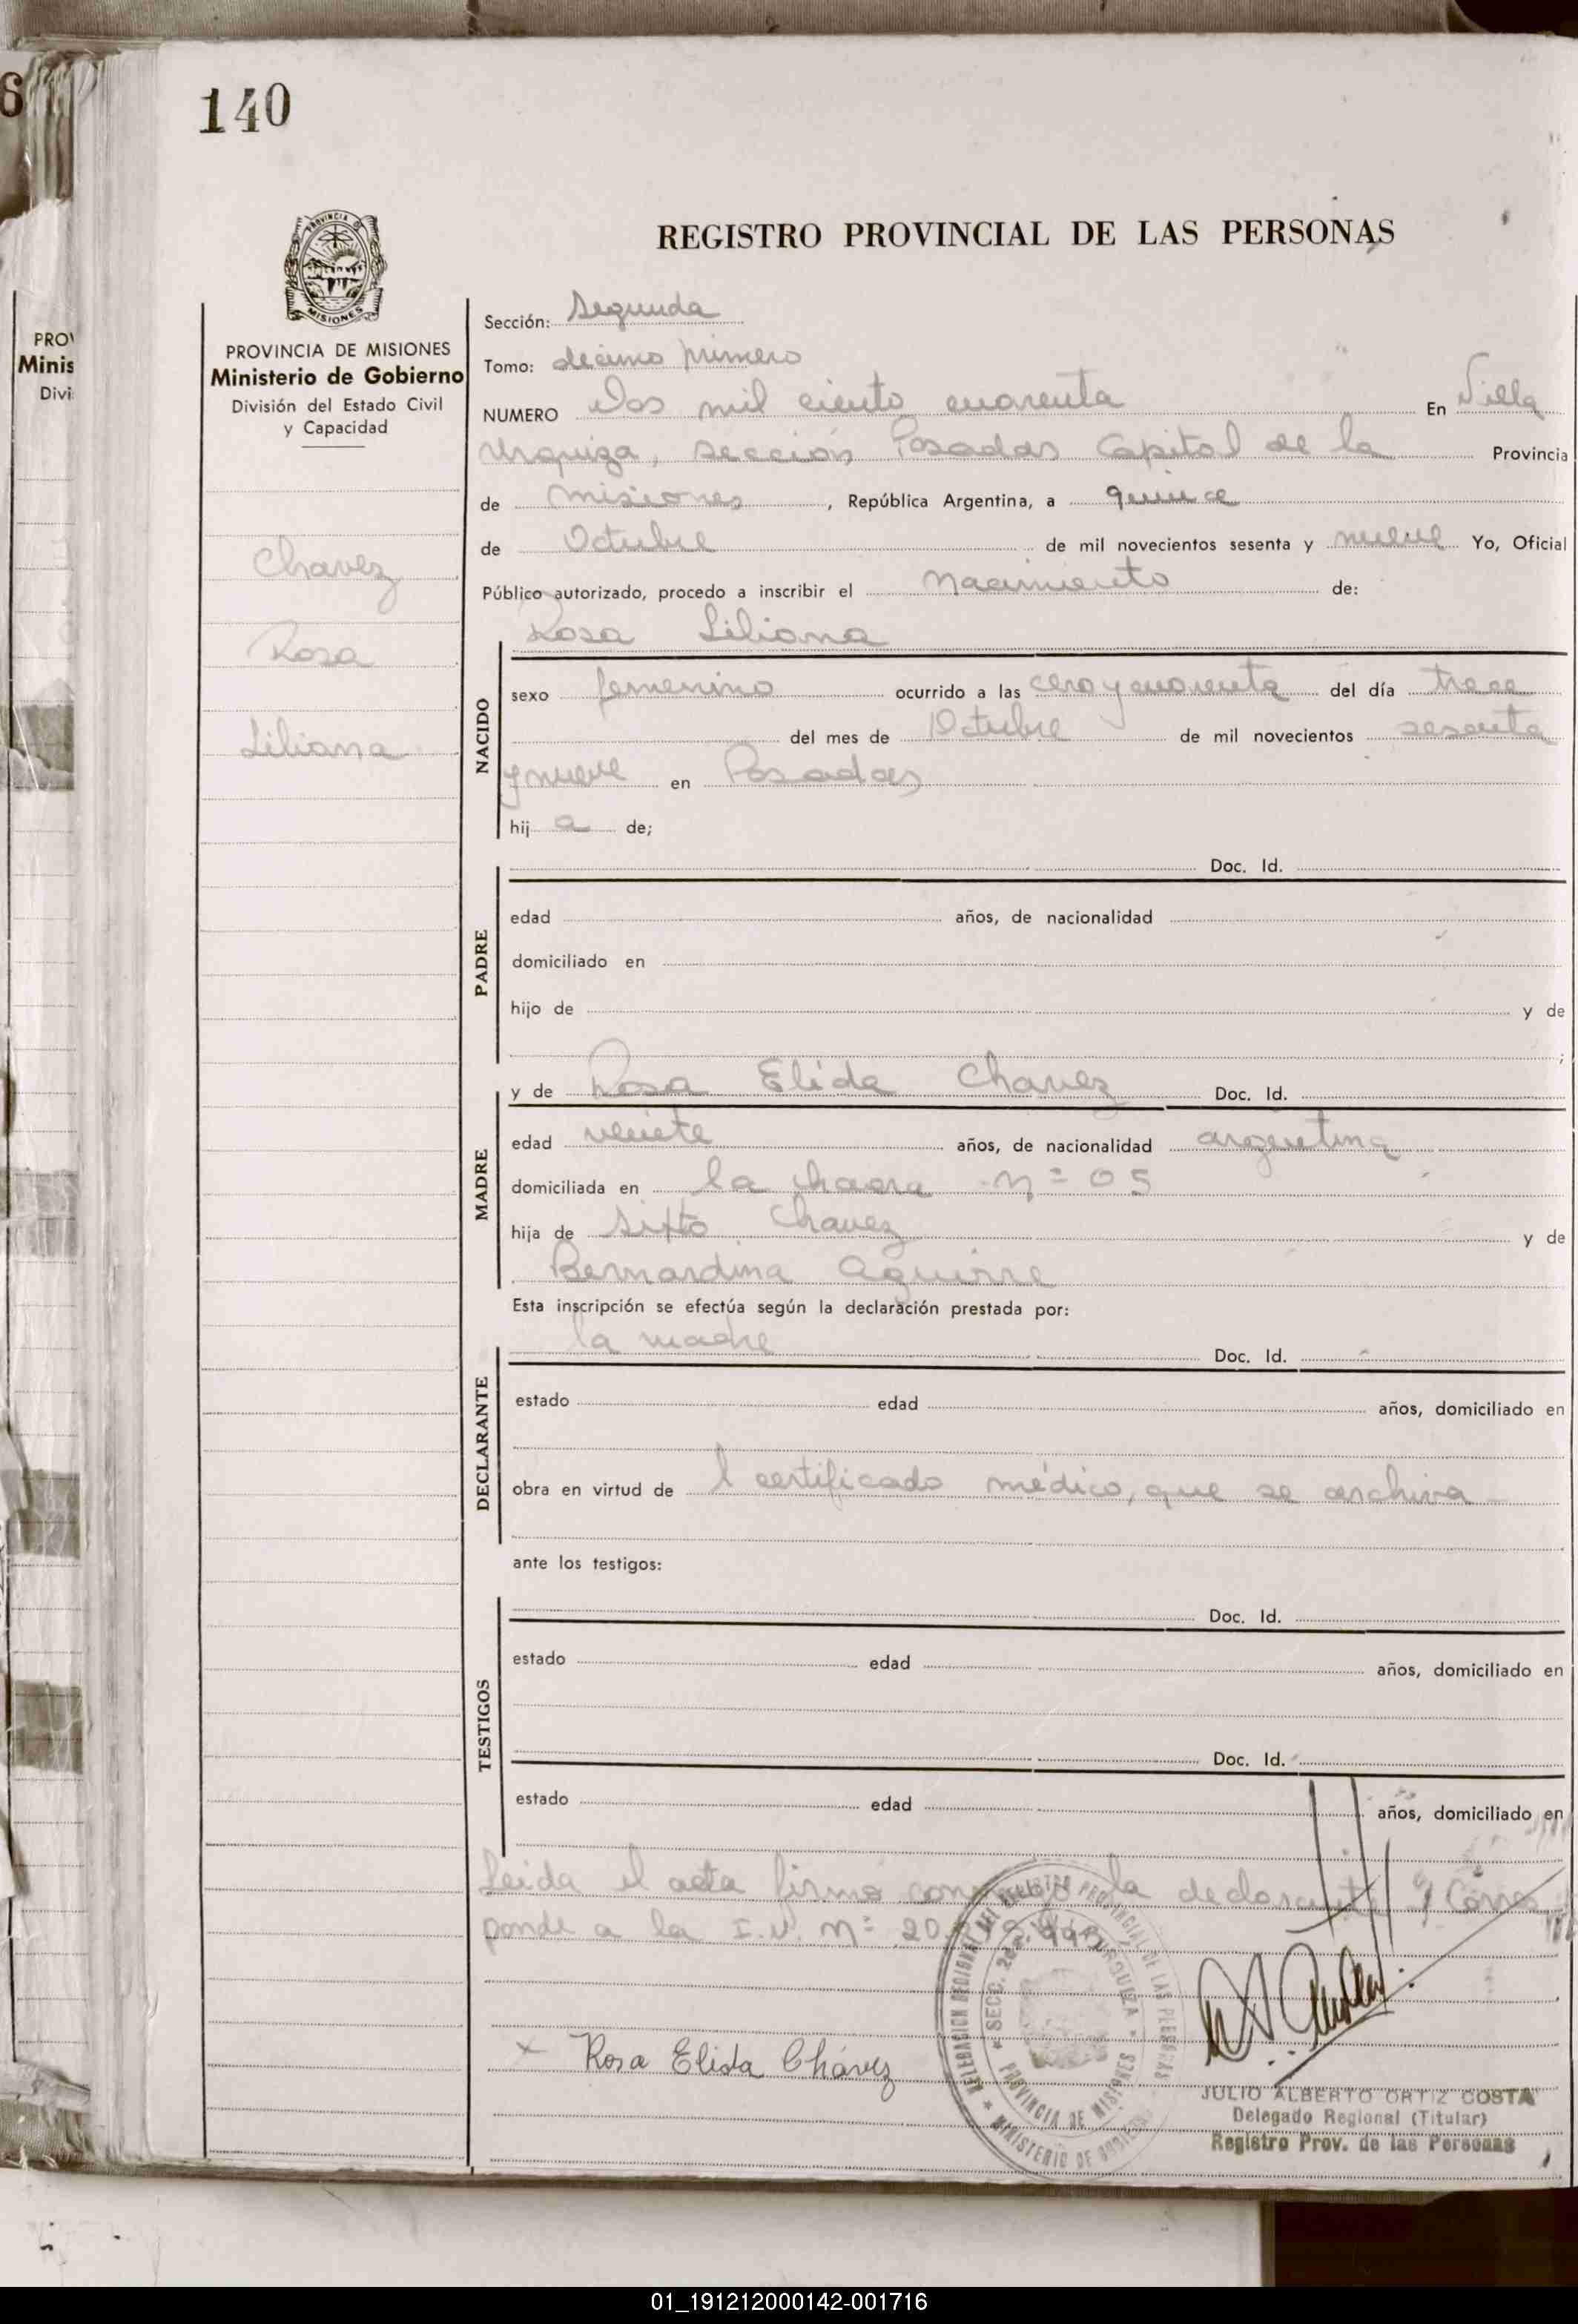 6
140
PROVINCIA DE
MISIONES
REGISTRO PROVINCIAL DE LAS PERSONAS
PROVINCIA DE MISIONES
Ministerio de Gobierno
División del Estado Civil
y Capacidad
PROV
Minis
Divi
Chavez
Rosa
Liliana
Sección: Segunda
Tomo: décimo primero
NUMERO Dos mil ciento cuarenta En Villa
Urquiza, sección Posadas Capital de la Provincia
de Misiones, República Argentina, a quince
de Octubre de mil novecientos sesenta y nueve Yo, Oficial
Público autorizado, procedo a inscribir el Nacimiento de:
Rosa Liliana
NACIDO
sexo femenino ocurrido a las cero y cuarenta del día trece
del mes de Octubre de mil novecientos sesenta
y nueve en Posadas
hij a de;
PADRE
Doc. Id.
edad años, de nacionalidad
domiciliado en
hijo de y de
;
MADRE
y de Rosa Elida Chavez Doc. Id.
edad años, de nacionalidad argentina
domiciliada en la chacra nº 05
hija de Sixto Chavez y de
Bernardina Aguirre
Esta inscripción se efectúa según la declaración prestada por:
DECLARANTE
la madre Doc. Id.
estado edad años, domiciliado en
obra en virtud de l certificado médico, que se archiva
ante los testigos:
TESTIGOS
Doc. Id.
estado edad años, domiciliado en
Doc. Id.
estado edad años, domiciliado en
Leida el acta firma conmigo la declarante y Corres
ponde a la I.N. nº 20.
DELEGACION REGIONAL DEL REGISTRO PROVINCIAL DE LAS PERSONAS
SECC. 2da. VILLA URQUIZA
PROVINCIA DE MISIONES
MINISTERIO DE GOBIERNO
x Rosa Elida Chávez
JULIO ALBERTO ORTIZ COSTA
Delegado Regional (Titular)
Registro Prov. de las Personas
01_191212000142-001716